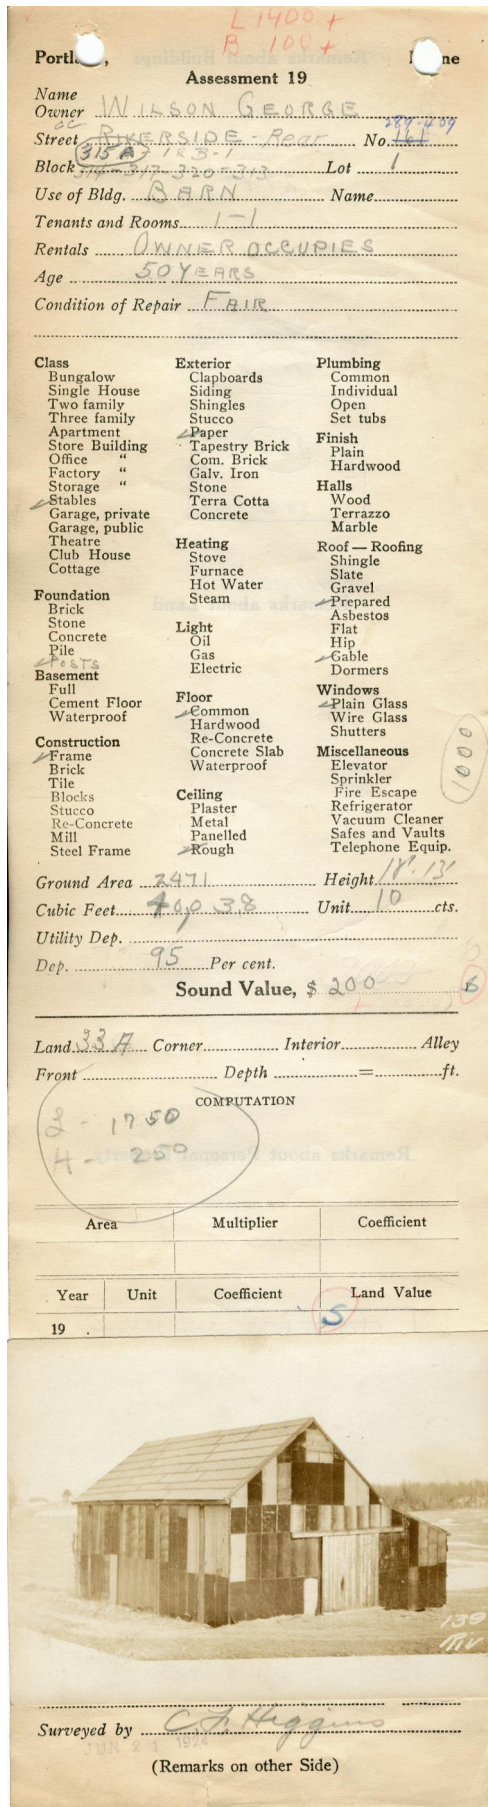 L 1400 +
B 100 +
Portla , ne
Assessment 19
Name
Owner WILSON GEORGE
289-409
Street RIVERSIDE - Rear No. 161
315 A 7 & B-1
Block 314-317-320-313 Lot 1
Use of Bldg. BARN Name
Tenants and Rooms 1-1
Rentals OWNER OCCUPIES
Age 50 YEARS
Condition of Repair FAIR
Class
Bungalow
Single House
Two family
Three family
Apartment
Store Building
Office "
Factory "
Storage "
Stables
Garage, private
Garage, public
Theatre
Club House
Cottage
Foundation
Brick
Stone
Concrete
Pile
POSTS
Basement
Full
Cement Floor
Waterproof
Construction
Frame
Brick
Tile
Blocks
Stucco
Re-Concrete
Mill
Steel Frame
Exterior
Clapboards
Siding
Shingles
Stucco
Paper
Tapestry Brick
Com. Brick
Galv. Iron
Stone
Terra Cotta
Concrete
Heating
Stove
Furnace
Hot Water
Steam
Light
Oil
Gas
Electric
Floor
Common
Hardwood
Re-Concrete
Concrete Slab
Waterproof
Ceiling
Plaster
Metal
Panelled
Rough
Plumbing
Common
Individual
Open
Set tubs
Finish
Plain
Hardwood
Halls
Wood
Terrazzo
Marble
Roof — Roofing
Shingle
Slate
Gravel
Prepared
Asbestos
Flat
Hip
Gable
Dormers
Windows
Plain Glass
Wire Glass
Shutters
Miscellaneous
Elevator
Sprinkler
Fire Escape
Refrigerator
Vacuum Cleaner
Safes and Vaults
Telephone Equip.
1000
Ground Area 2471 Height 18'-13'
Cubic Feet 38 Unit 10 cts.
Utility Dep.
Dep. 95 Per cent.
Sound Value, $ 200
Land 33 A Corner Interior Alley
Front Depth = ft.
COMPUTATION
L - 1750
H - 250
Area Multiplier Coefficient
Year Unit Coefficient Land Value
S
19 .
139
Riv
Surveyed by C. F. Higgins
JUN 21 1924
(Remarks on other Side)